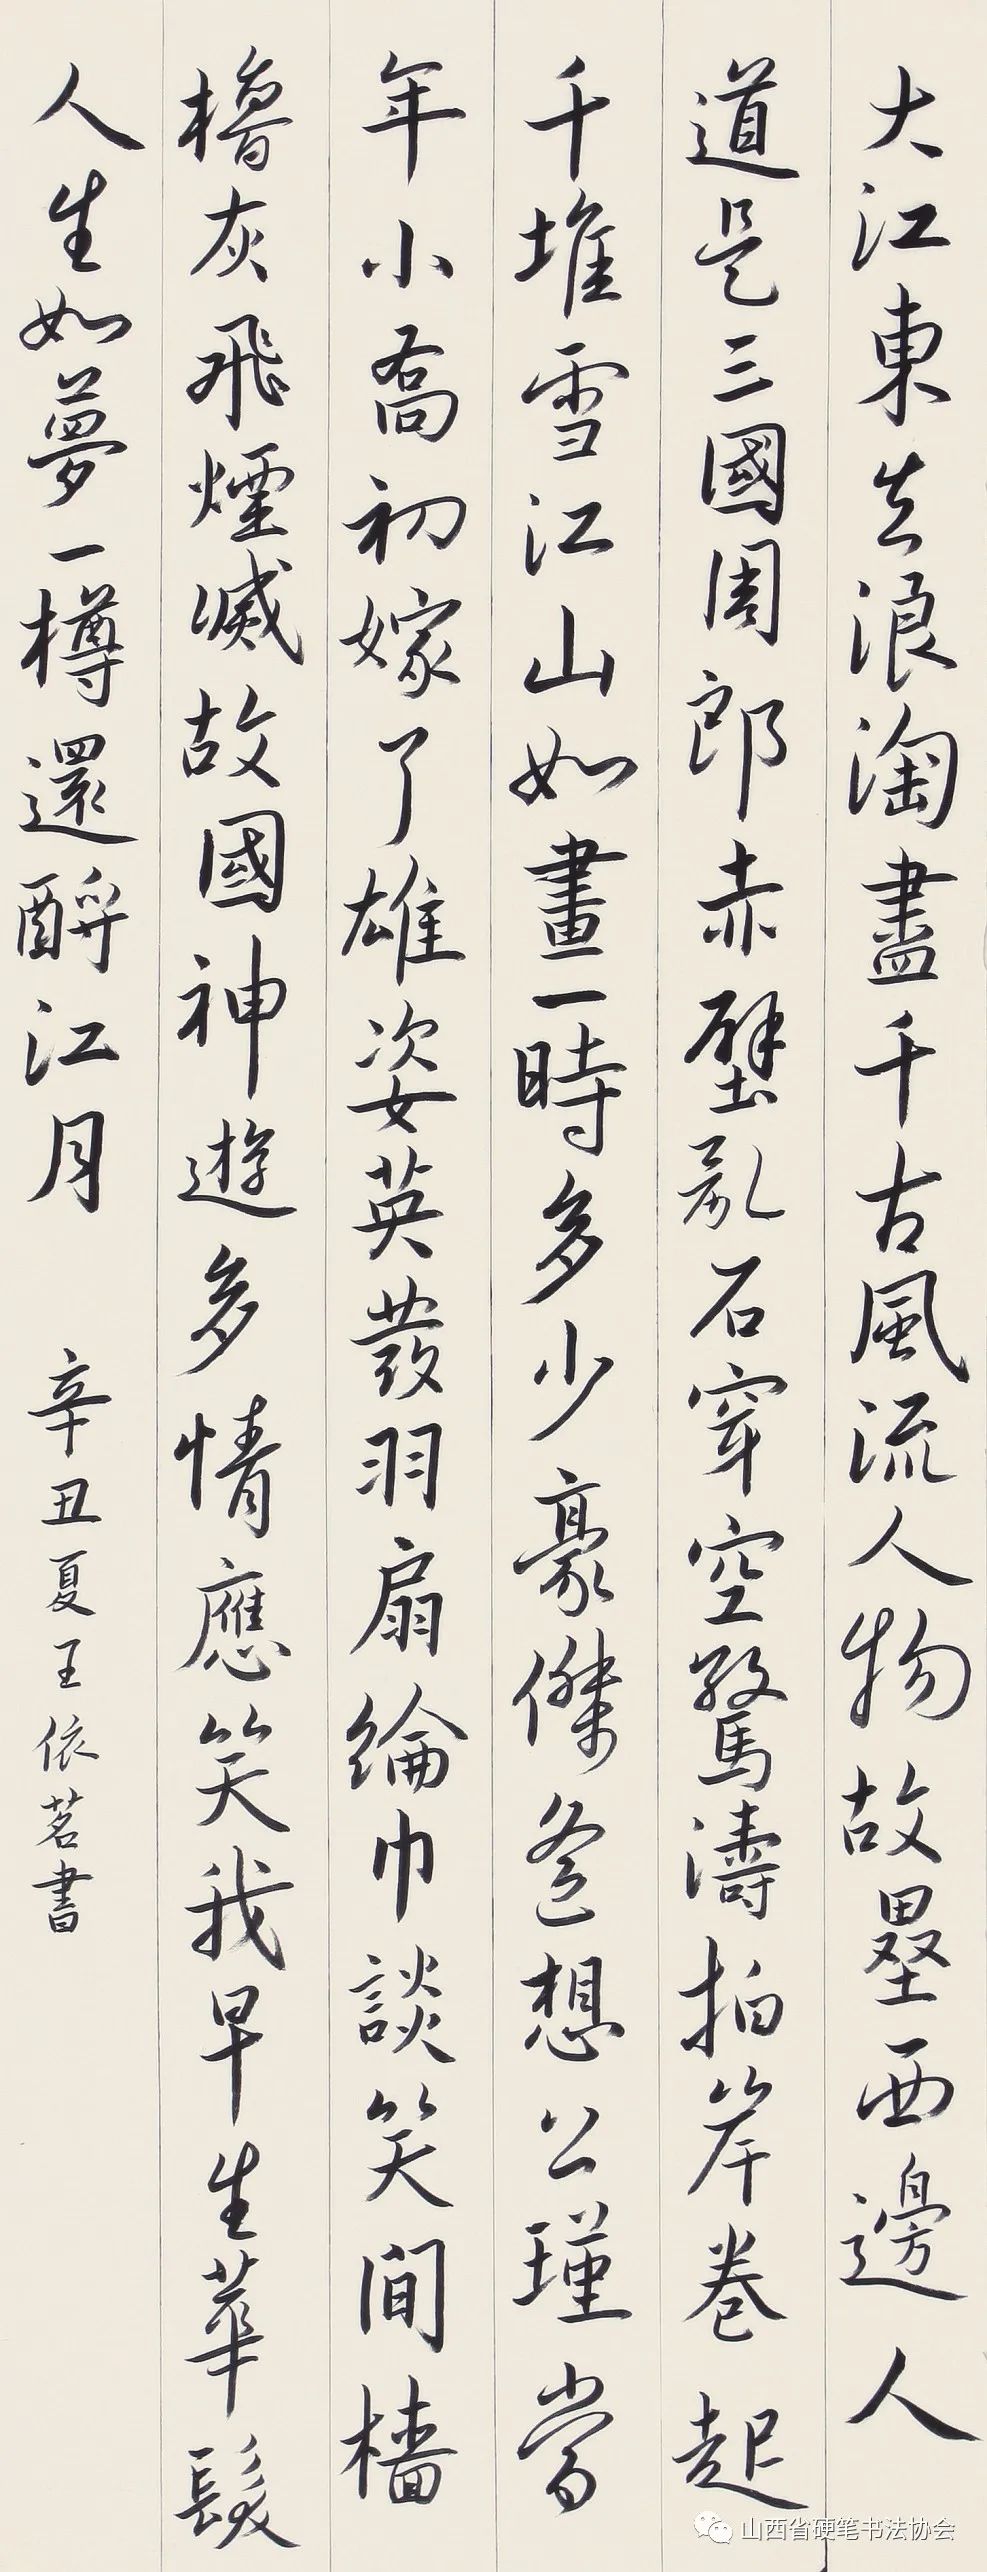 大江東去浪淘盡千古風流人物故壘西邊人
道是三國周郎赤壁亂石穿空驚濤拍岸卷起
千堆雪江山如畫一時多少豪傑遥想公瑾當
年小喬初嫁了雄姿英發羽扇綸巾談笑間檣
櫓灰飛煙滅故國神遊多情應笑我早生華髮
人生如夢一樽還酹江月
辛丑夏王依茗書
山西省硬笔书法协会